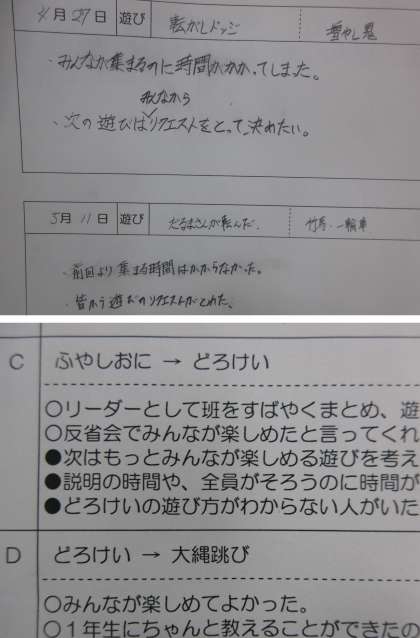 4月27日 遊び 転がしドッジ 増やし鬼
・みんなが集まるのに時間がかかってしまった。
みんなから
・次の遊びはリクエストをとって決めたい。
5月11日 遊び だるまさんが転んだ. 竹馬・一輪車
・前回より集まる時間はかからなかった。
・皆から遊びのリクエストがとれた、
C ふやしおに → どろけい
○リーダーとして班をすばやくまとめ、遊
○反省会でみんなが楽しめたと言ってくれ
●次はもっとみんなが楽しめる遊びを考え
●説明の時間や、全員がそろうのに時間が
●どろけいの遊び方がわからない人がいた
D どろけい → 大縄跳び
○みんなが楽しめてよかった。
○1年生にちゃんと教えることができたの